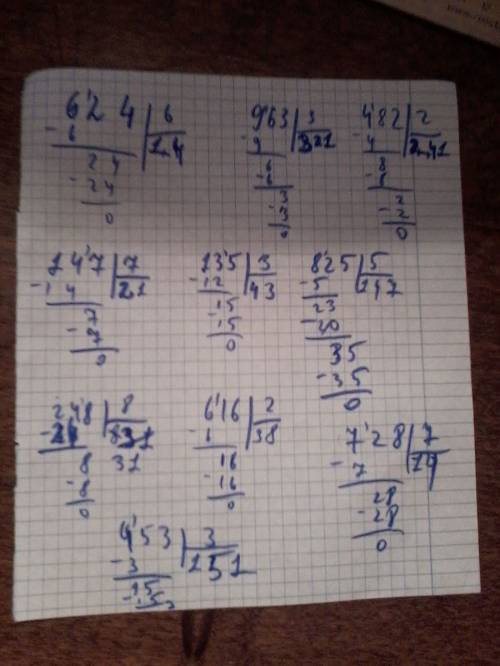 6'2 4 | 6
- 6 | 1 4
2 4
- 2 4
0
9'63 | 3
- 9 | 321
6
- 6
3
- 3
0
4'82 | 2
- 4 | 2 41
8
- 8
2
- 2
0
14'7 | 7
- 1 4 | 21
7
- 7
0
13'5 | 3
- 12 | 43
15
- 15
0
8'25 | 5
- 5 | 147
23
- 20
35
- 35
0
24'8 | 8
- 24 | 31
8 31
- 8
0
6'16 | 2
- 1 | 38
16
- 16
0
7'28 | 7
- 7 | 14
28
- 28
0
4'53 | 3
- 3 | 151
15